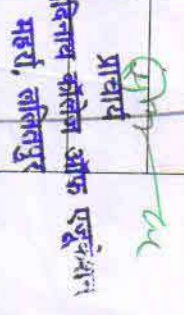 प्राचार्य
विनाथ कॉलेज ऑफ एजूकेशन
महर्रा, ललितपुर